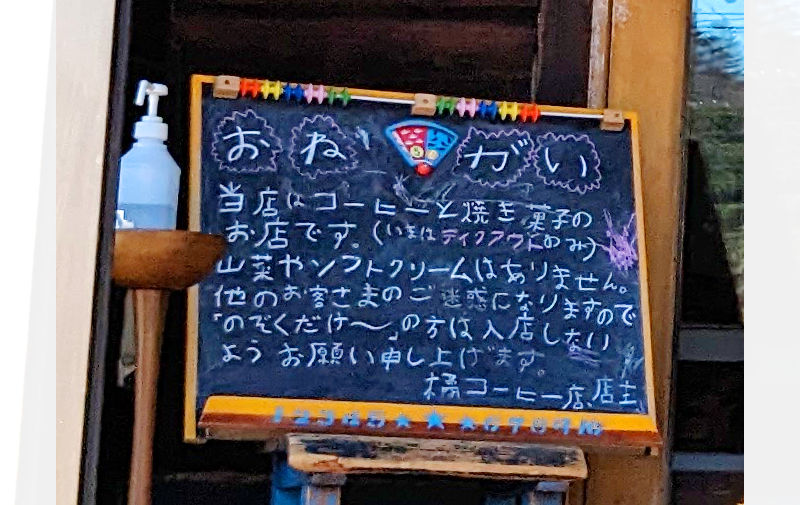 おねがい
当店はコーヒーと焼き菓子の
お店です。(いまはテイクアウトのみ)
山菜やソフトクリームはありません。
他のお客さまのご迷惑になりますので
「のぞくだけ〜」の方は入店しない
ようお願い申し上げます。
橘コーヒー店 店主
1 2 3 4 5 ★ ★ ★ 6 7 8 9 10